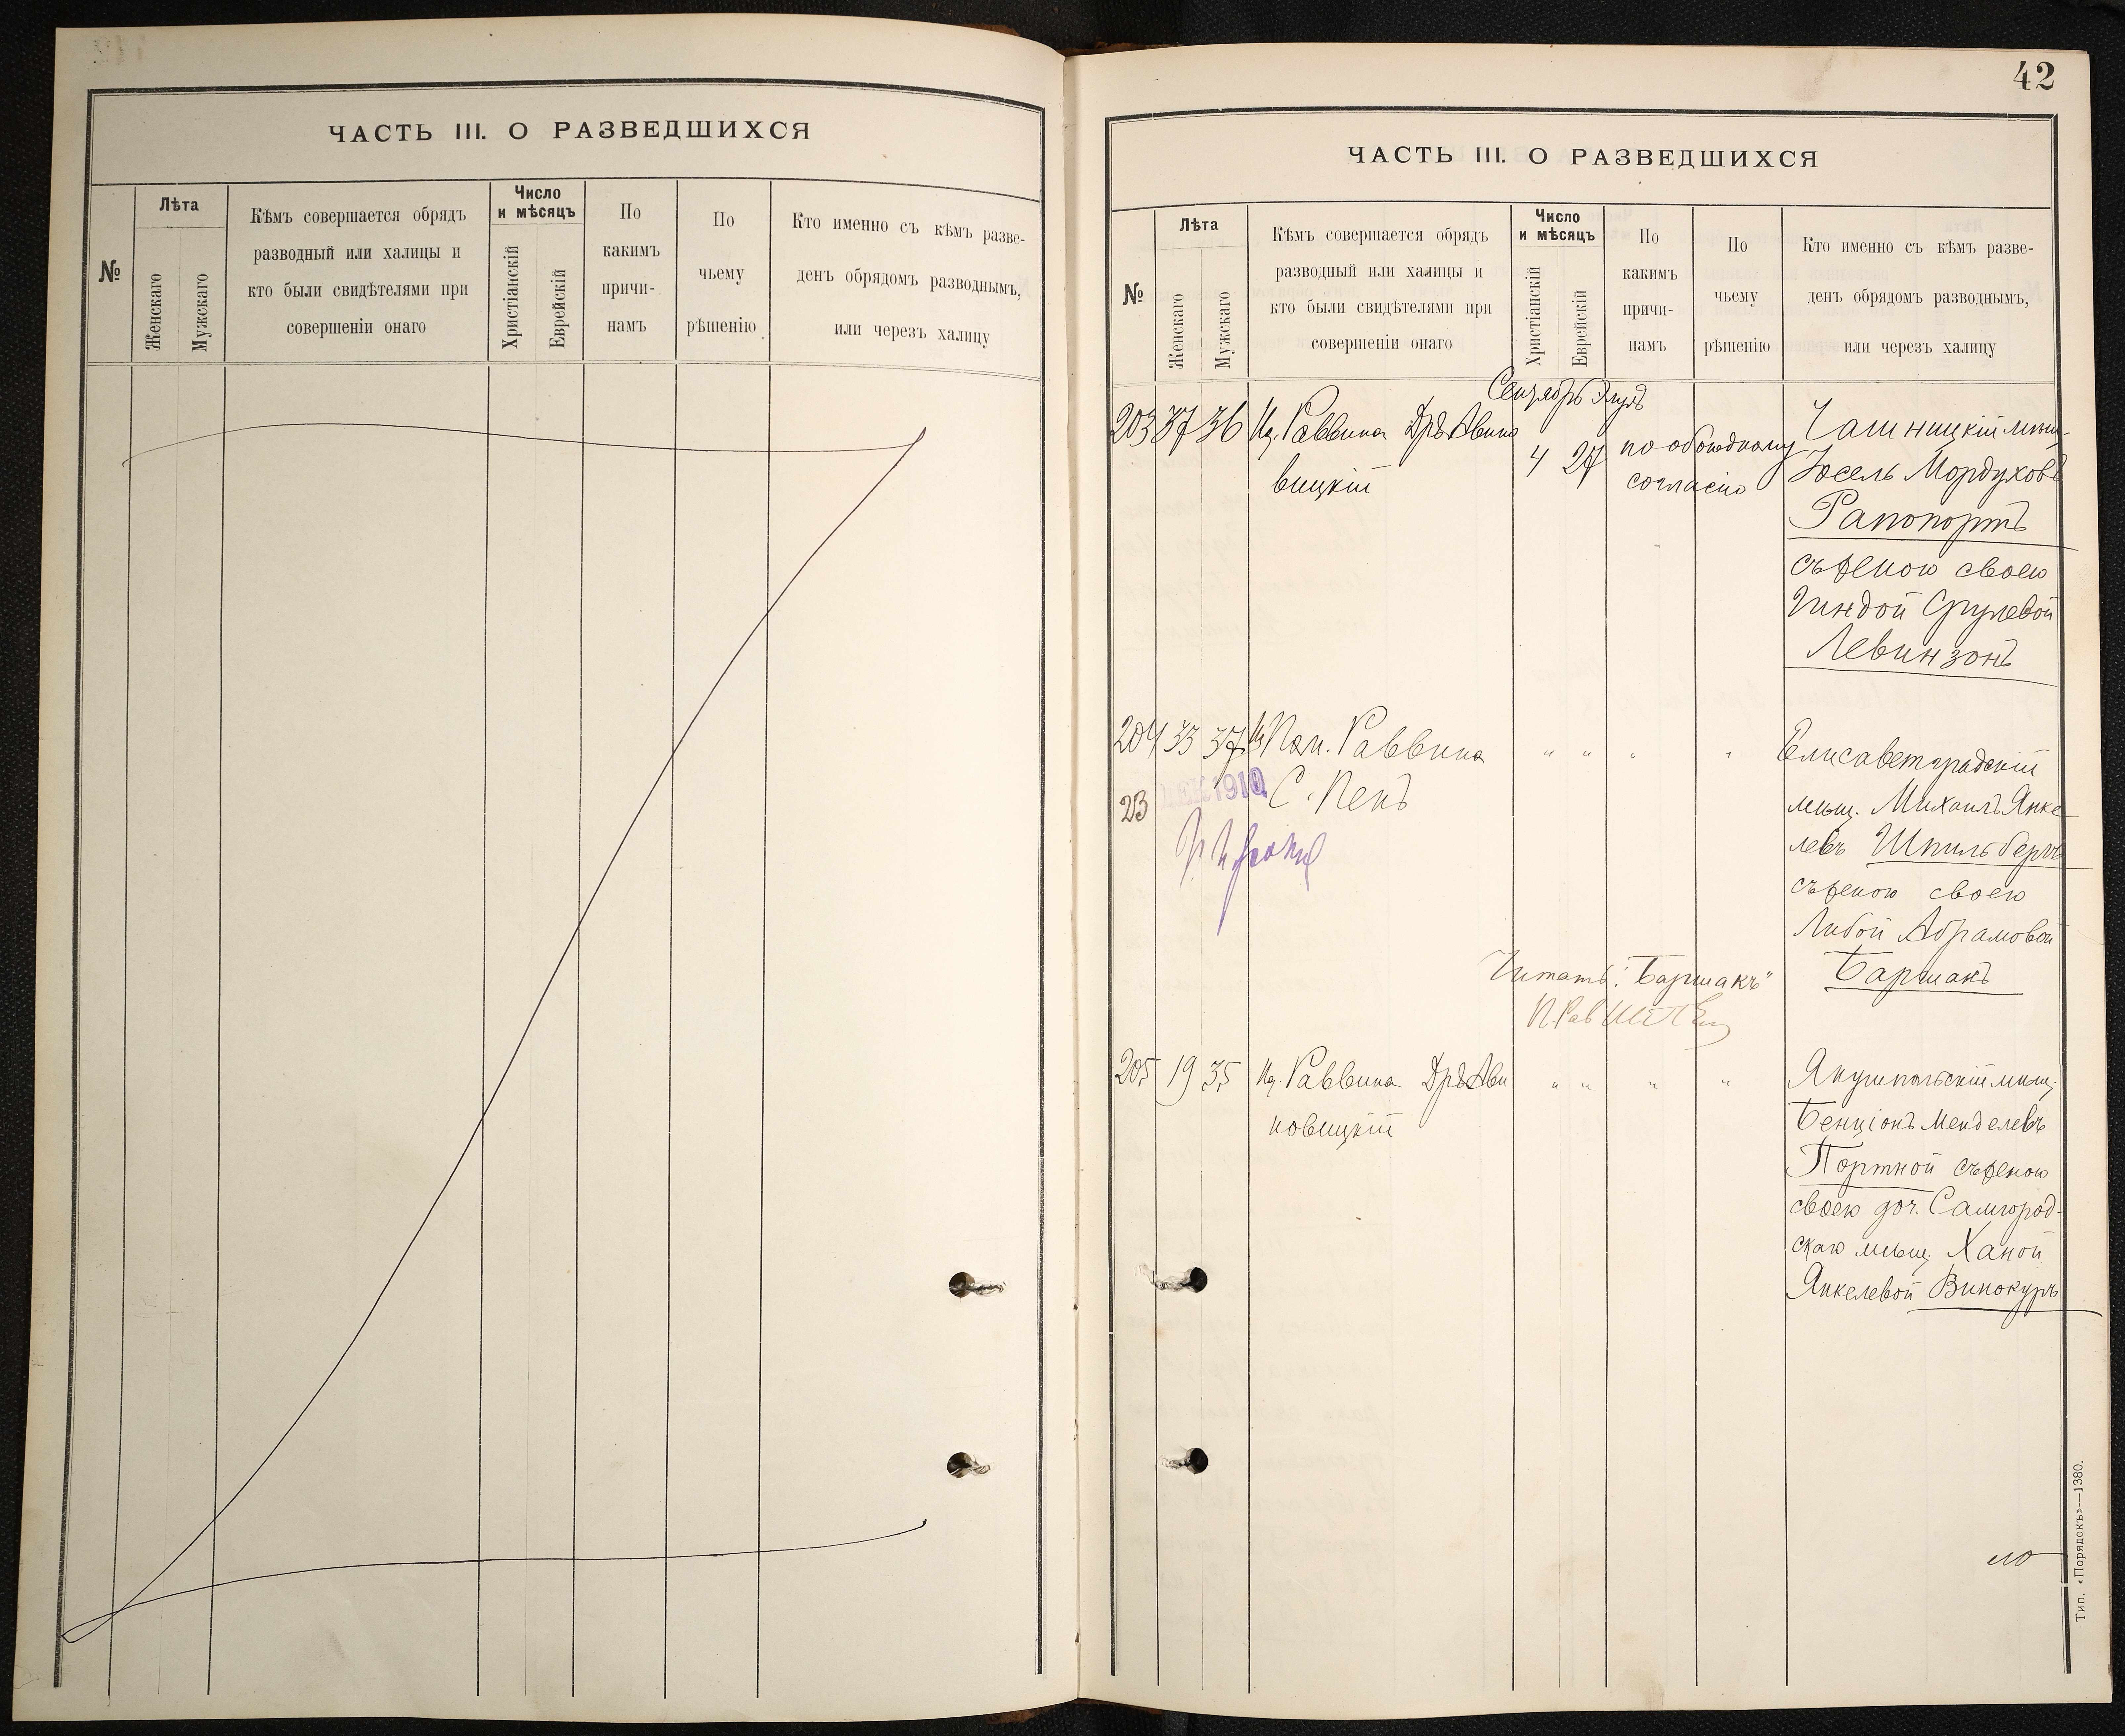 ЧАСТЬ III. О РАЗВЕДШИХСЯ
№
Лѣта
Женскаго
Мужскаго
Кѣмъ совершается обрядъ
разводный или халицы и
кто были свидѣтелями при
совершеніи онаго
Число
и мѣсяцъ
Христіанскій
Еврейскій
По
какимъ
причи-
намъ
По
чьему
рѣшенію
Кто именно съ кѣмъ разве-
денъ обрядомъ разводнымъ,
или черезъ халицу
42
ЧАСТЬ III. О РАЗВЕДШИХСЯ
№
Лѣта
Женскаго
Мужскаго
Кѣмъ совершается обрядъ
разводный или халицы и
кто были свидѣтелями при
совершеніи онаго
Число
и мѣсяцъ
Христіанскій
Еврейскій
По
какимъ
причи-
намъ
По
чьему
рѣшенію
Кто именно съ кѣмъ разве-
денъ обрядомъ разводнымъ,
или черезъ халицу
Сентябрь Элулъ
203 37 36 Раввина Дръ Авино
вицкій
4 27
по обоюдному
согласію
Чашницкій мѣщ.
Іосель Мордуховъ
Рапопортъ
съ женою своею
Гиндой Срулевой
Левинзонъ
204 33 37 Пом. Раввина
С. Пенъ
" " " "
23 ДЕК 1910
Елисаветградскій
мѣщ. Михаилъ Янке
левъ Шпильбергъ
съ женою своею
Либой Абрамовой
Баршакъ
Читать: "Баршакъ"
П. Рав
205 19 35 Раввина Дръ Ави
новицкій
" " " "
Якушпольскій мѣщ.
Бенціонъ Менделевъ
Портной съ женою
своею доч. Самгород-
скаго мѣщ. Ханой
Янкелевой Винокуръ
Тип. «Порядокъ»—1380.